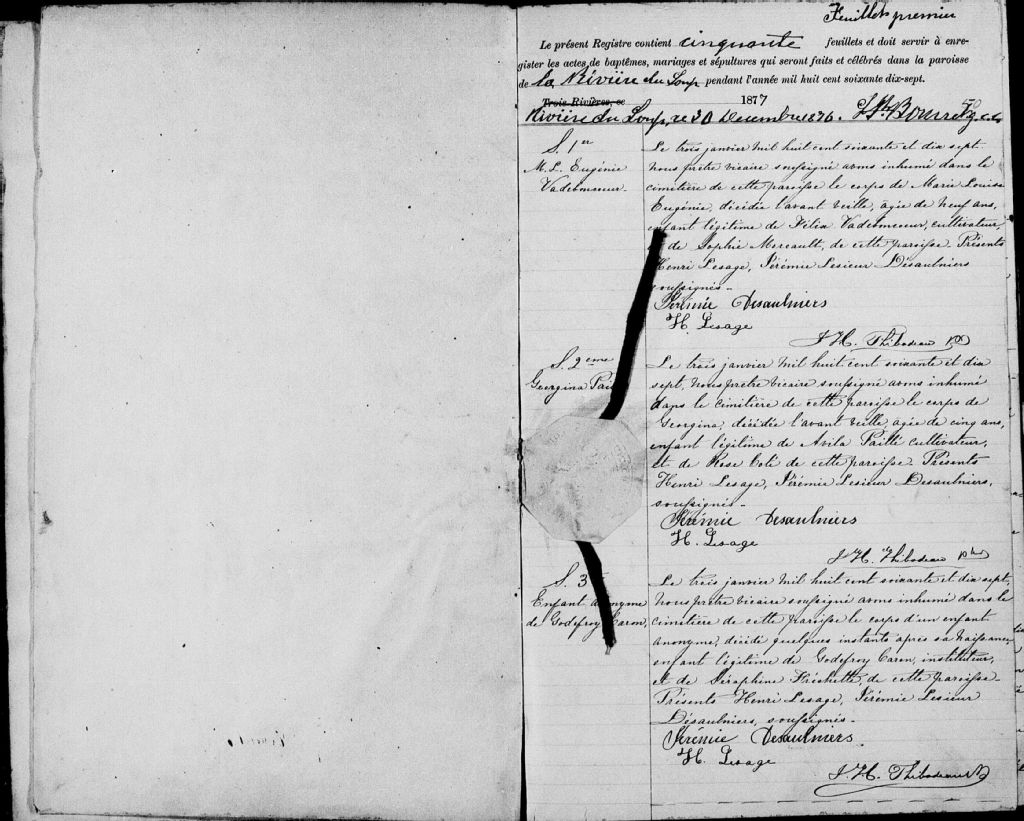 Feuillets premier
Le présent Registre contient cinquante feuillets et doit servir à enre-
gister les actes de baptêmes, mariages et sépultures qui seront faits et célébrés dans la paroisse
de la Rivière du Loup pendant l'année mil huit cent soixante dix-sept.
Trois-Rivières, ce 1877
Rivière du Loup, ce 30 Décembre 1876.
S. 1er
M. L. Eugénie
Vadeboncoeur.
Le trois janvier mil huit cent soixante et dix sept
nous prêtre vicaire soussigné avons inhumé dans le
cimetière de cette paroisse le corps de Marie Louise
Eugénie, décédée l'avant veille, agée de neuf ans,
enfant légitime de Félix Vadeboncoeur, cultivateur,
de Sophie Marcault, de cette paroisse. Présents
Henri Lesage, Jérémie Lesieur Désaulniers
soussignés -
Jérémie Desaulniers
H. Lesage
J. H. Thibodeau Ptre
S. 2eme
Georgina Pai
Le trois janvier mil huit cent soixante et dix
sept, nous prêtre vicaire soussigné avons inhumé
dans le cimetière de cette paroisse le corps de
Georgina, décédée l'avant veille, agée de cinq ans,
enfant légitime de Avila Paillé cultivateur,
et de Rose Coté de cette paroisse. Présents
Henri Lesage, Jérémie Lesieur Desaulniers,
soussignés -
Jérémie Desaulniers
H. Lesage
J. H. Thibodeau Ptre
S. 3
Enfant anonyme
de Godefroy Caron,
Le trois janvier mil huit cent soixante et dix sept
nous prêtre vicaire soussigné avons inhumé dans le
cimetière de cette paroisse le corps d'un enfant
anonyme, décédé quelques instants après sa naissance,
enfant légitime de Godefroy Caron, instituteur,
et de Séraphine Fréchette, de cette paroisse
Présents Henri Lesage, Jérémie Lesieur
Désaulniers, soussignés -
Jérémie Desaulniers
H. Lesage
J. H. Thibodeau